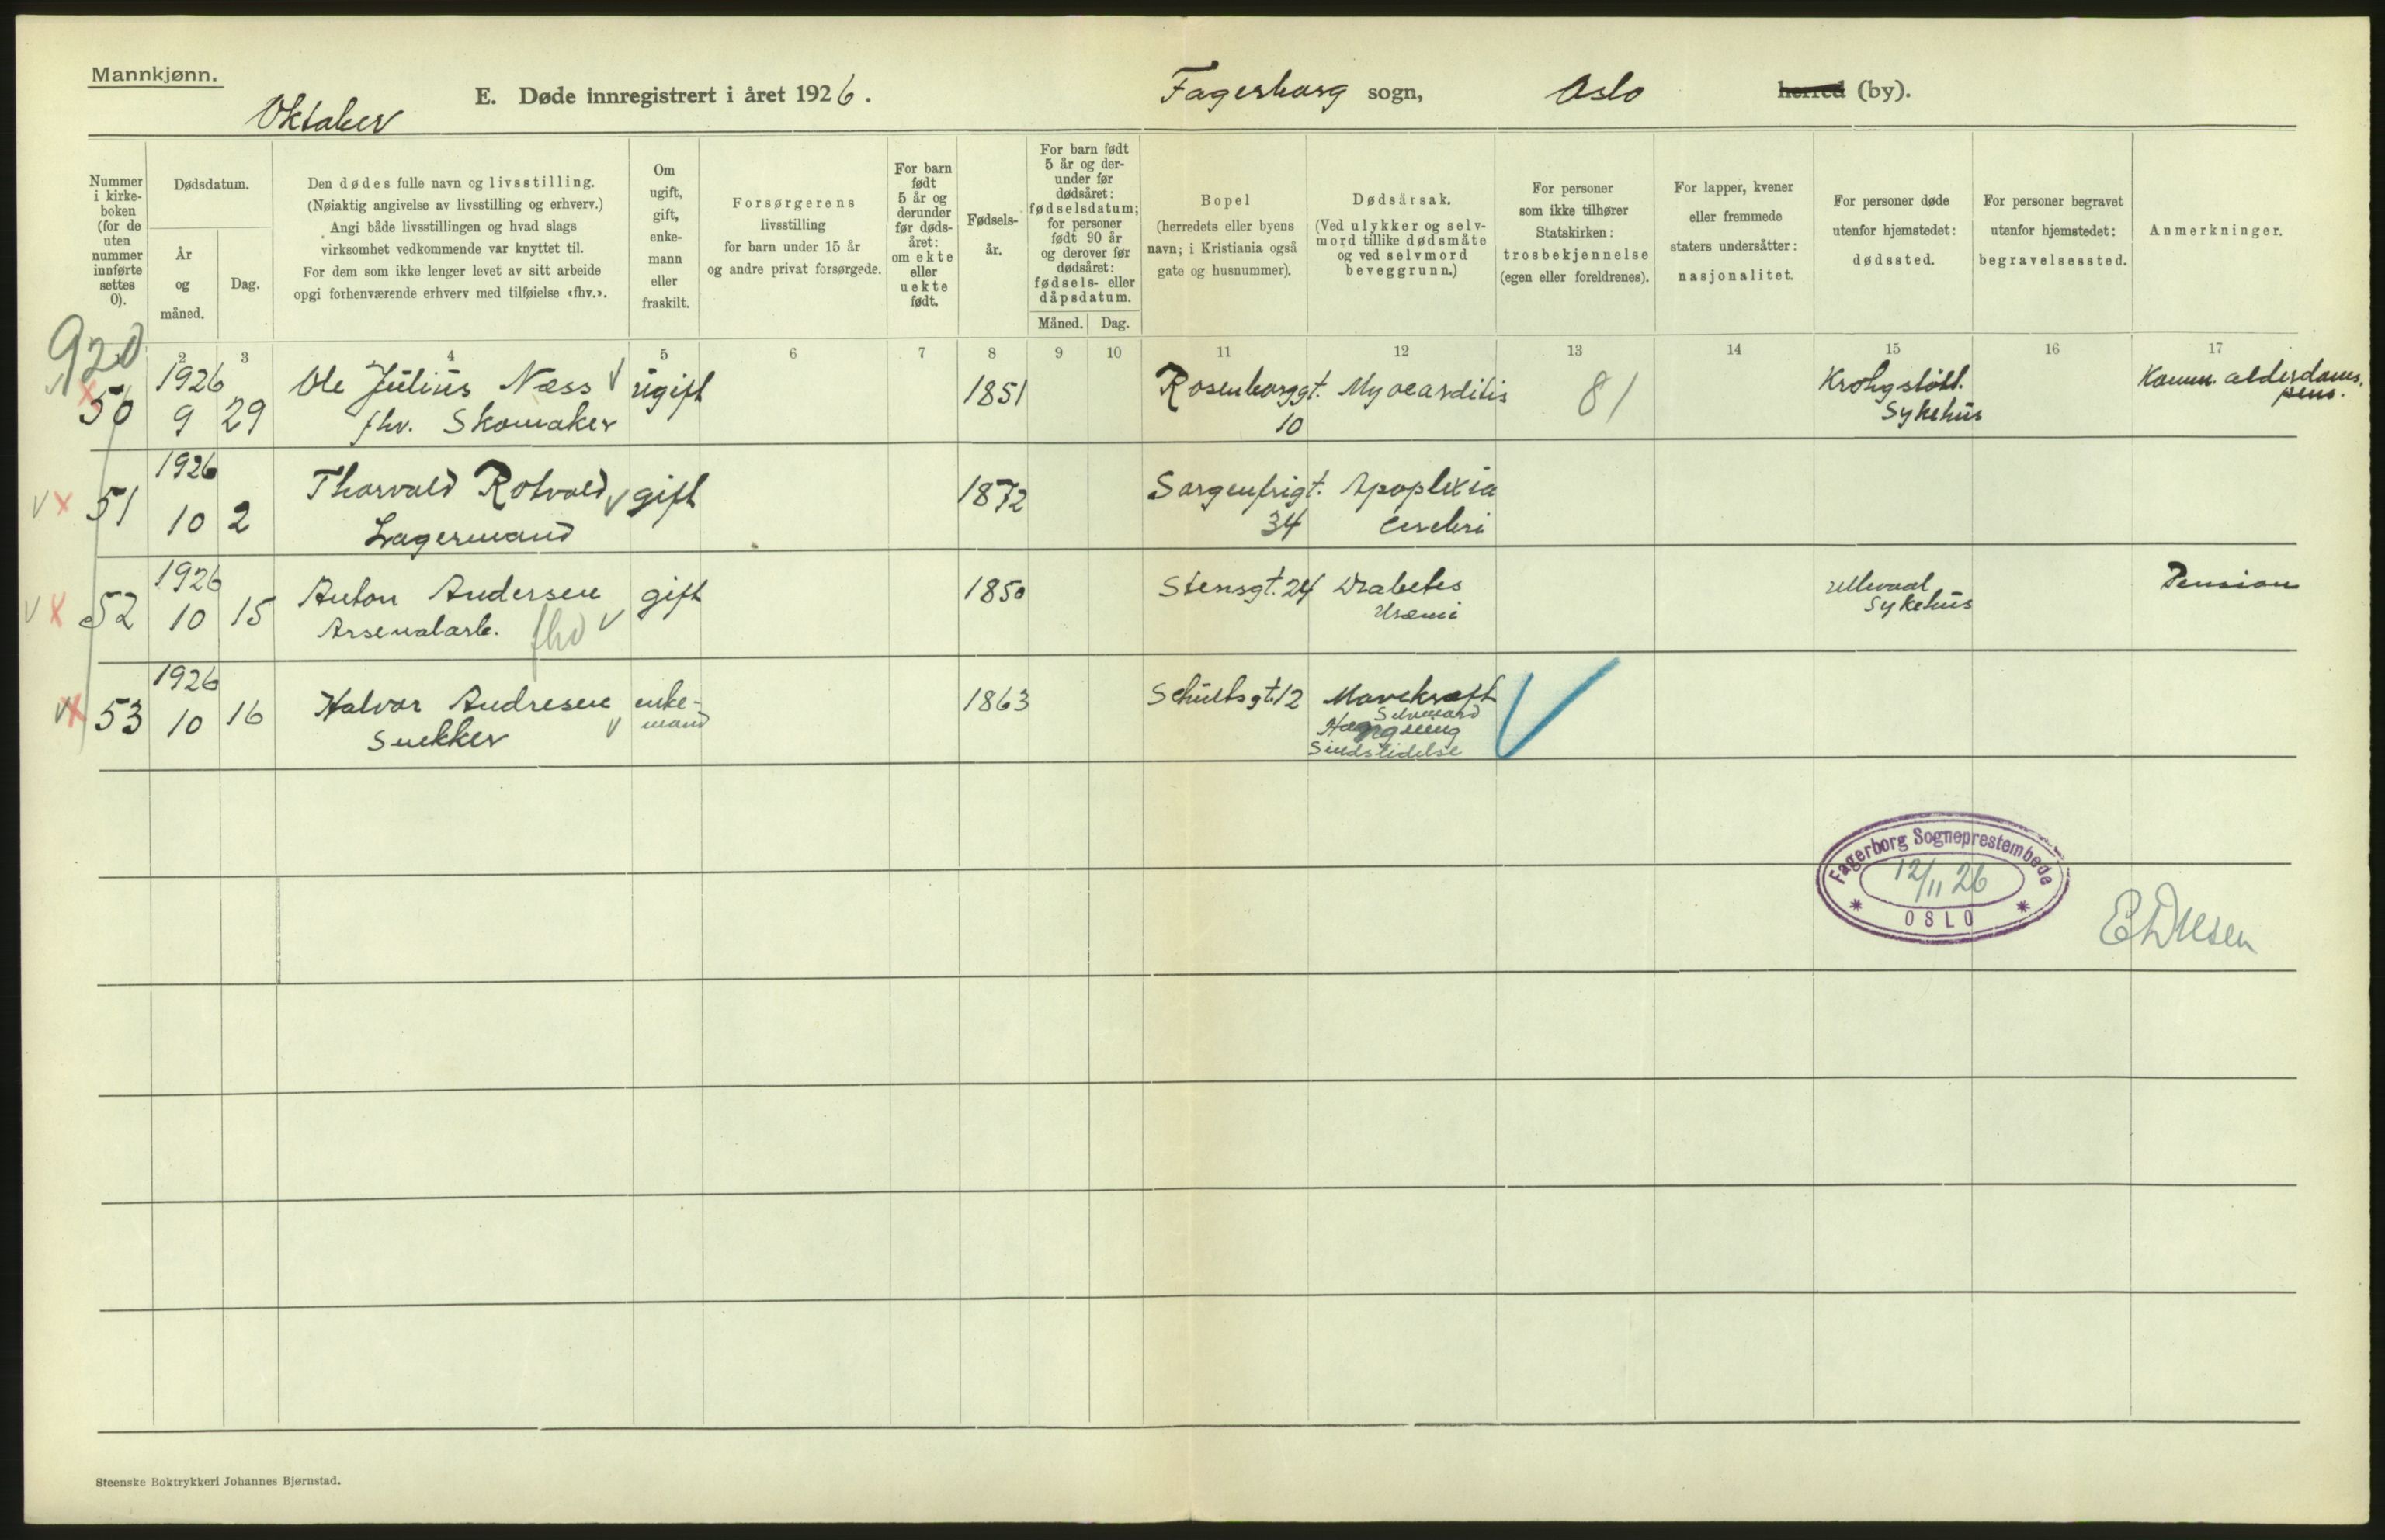 Mannkjønn.
Oktober
E. Døde innregistrert i året 1926.
Fagerborg sogn,
Oslo
herred (by).
Nummer i kirkeboken (for de uten nummer innførte settes 0).
Dødsdatum.
År og måned.
Dag.
Den dødes fulle navn og livsstilling.
(Nøiaktig angivelse av livsstilling og erhverv.)
Angi både livsstillingen og hvad slags
virksomhet vedkommende var knyttet til.
For dem som ikke lenger levet av sitt arbeide
opgi forhenværende erhverv med tilføielse «fhv.».
Om ugift, gift, enkemann eller fraskilt.
Forsørgerens
livsstilling
for barn under 15 år
og andre privat forsørgede.
For barn født 5 år og derunder før dødsåret: om ekte eller uekte født.
Fødselsår.
For barn født 5 år og derunder før dødsåret: fødselsdatum; for personer født 90 år og derover før dødsåret: fødsels- eller dåpsdatum.
Måned.
Dag.
Bopel
(herredets eller byens
navn; i Kristiania også
gate og husnummer).
Dødsårsak.
(Ved ulykker og selv-
mord tillike dødsmåte
og ved selvmord
beveggrunn.)
For personer
som ikke tilhører
Statskirken:
trosbekjennelse
(egen eller foreldrenes).
For lapper, kvener
eller fremmede
staters undersåtter:
nasjonalitet.
For personer døde
utenfor hjemstedet:
dødssted.
For personer begravet
utenfor hjemstedet:
begravelsessted.
Anmerkninger.
920
2 3 4 5 6 7 8 9 10 11 12 13 14 15 16 17
50 1926 9 29 Ole Julius Næss fhv. Skomaker ugift 1851 Rosenborggt. 10 Myocarditis 81 Krohgstøtt. Sykehus Komm. alderdoms. pens.
51 1926 10 2 Thorvald Rotvold Lagermand gift 1872 Sorgenfrigt. 34 Apoplexia cerebri
52 1926 10 15 Anton Andersen Arsenalarb. fhv gift 1850 Stensgt. 24 Diabetes Uræmi Ullevaal Sykehus Pension
53 1926 10 16 Halvor Andresen Snekker enke-mand 1863 Schultsgt. 12 Mavekræft Selvmord Hængning Sindslidelse
Fagerborg Sogneprestembede
12/11 26
* OSLO *
Steenske Boktrykkeri Johannes Bjørnstad.